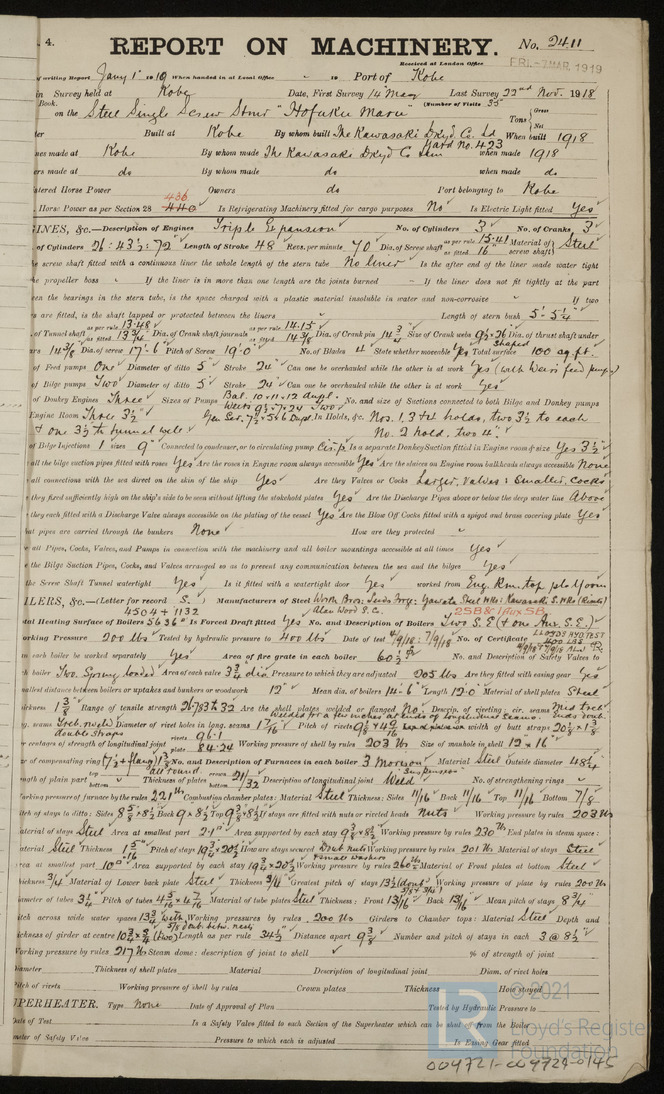 4. REPORT ON MACHINERY. No. 2411
Received at London Office
FRI. -7 MAR. 1919
of writing Report Jany 1st 1919 When handed in at Local Office 19 Port of Kobe
in Survey held at Kobe Date, First Survey 14 May Last Survey 22nd Nov. 1918
Book. (Number of Visits 35
on the Steel Single Screw Stmr "Hofuku Maru" Tons { Gross Net
Built at Kobe By whom built The Kawasaki Dkyd Co. Ld When built 1918
Yard No. 423
nes made at Kobe By whom made The Kawasaki Dkyd Co when made 1918
ers made at do By whom made do when made do
stered Horse Power Owners do Port belonging to Kobe
Horse Power as per Section 28 440 436 Is Refrigerating Machinery fitted for cargo purposes No Is Electric Light fitted Yes
GINES, &c.—Description of Engines Triple Expansion No. of Cylinders 3 No. of Cranks 3
of Cylinders 26 : 43½ : 72 Length of Stroke 48 Revs. per minute 70 Dia. of Screw shaft as per rule 15.41 as fitted 16" Material of screw shaft Steel
he screw shaft fitted with a continuous liner the whole length of the stern tube No liner Is the after end of the liner made water tight
he propeller boss If the liner is in more than one length are the joints burned If the liner does not fit tightly at the part
een the bearings in the stern tube, is the space charged with a plastic material insoluble in water and non-corrosive If two
rs are fitted, is the shaft lapped or protected between the liners Length of stern bush 5'-5¼"
of Tunnel shaft as per rule 13.48 as fitted 13¾ Dia. of Crank shaft journals as per rule 14.15 as fitted 14⅜ Dia. of Crank pin 14¾ Size of Crank webs 9½ × 26 shaped Dia. of thrust shaft under
ars 14⅜ Dia. of screw 17'-6" Pitch of Screw 19'-0" No. of Blades 4 State whether moveable Yes Total surface 100 sq. ft.
of Feed pumps One Diameter of ditto 5" Stroke 24" Can one be overhauled while the other is at work Yes (with Weirs feed pumps)
of Bilge pumps Two Diameter of ditto 5" Stroke 24" Can one be overhauled while the other is at work Yes
of Donkey Engines Three Sizes of Pumps Bal. 10 × 11 × 12 dupl. No. and size of Suctions connected to both Bilge and Donkey pumps
Weirs 9½ × 7 × 24 Two
Engine Room Three 3½" Gen. Ser. 7½ × 5 × 6 Dupl. In Holds, &c. Nos. 1, 3 & 4 holds, two 3½ to each
& one 3½ to tunnel well No. 2 hold, two 4"
of Bilge Injections 1 sizes 9" Connected to condenser, or to circulating pump Cir. p. Is a separate Donkey Suction fitted in Engine room & size Yes 3½"
all the bilge suction pipes fitted with roses Yes Are the roses in Engine room always accessible Yes Are the sluices on Engine room bulkheads always accessible None
all connections with the sea direct on the skin of the ship Yes Are they Valves or Cocks Larger, Valves : Smaller, Cocks
they fixed sufficiently high on the ship's side to be seen without lifting the stokehold plates Yes Are the Discharge Pipes above or below the deep water line Above
they each fitted with a Discharge Valve always accessible on the plating of the vessel Yes Are the Blow Off Cocks fitted with a spigot and brass covering plate Yes
hat pipes are carried through the bunkers None How are they protected
all Pipes, Cocks, Valves, and Pumps in connection with the machinery and all boiler mountings accessible at all times Yes
the Bilge Suction Pipes, Cocks, and Valves arranged so as to prevent any communication between the sea and the bilges Yes
the Screw Shaft Tunnel watertight Yes Is it fitted with a watertight door Yes worked from Eng. Rm. top platform
ILERS, &c.—(Letter for record S. ) Manufacturers of Steel
Alan Wood S. Co. 2SB & 1 Aux SB
4504 + 1132
tal Heating Surface of Boilers 5636 Is Forced Draft fitted Yes No. and Description of Boilers Two S.E. (& one Aux S.E.)
orking Pressure 200 lbs Tested by hydraulic pressure to 400 lbs Date of test 4/9/18 : 7/9/18 No. of Certificate
LLOYDS HYD. TEST 400 LBS
n each boiler be worked separately Yes Area of fire grate in each boiler 60½ No. and Description of Safety Valves to
ch boiler Two. Spring loaded Area of each valve 3¾ dia Pressure to which they are adjusted 205 lbs Are they fitted with easing gear Yes
mallest distance between boilers or uptakes and bunkers or woodwork 12" Mean dia. of boilers 14'-6" Length 12'-0" Material of shell plates Steel
ickness 1⅜ Range of tensile strength 28.783 to 32 Are the shell plates welded or flanged No Descrip. of riveting : cir. seams
Welded for a few inches at ends of longitudinal seams. Ends doub.
. seams Treb. rivtd double straps Diameter of rivet holes in long. seams 1 7/16 Pitch of rivets width of butt straps
er centages of strength of longitudinal joint 96.1 plate 84.24 Working pressure of shell by rules 203 lbs Size of manhole in shell 12 × 16"
No. and Description of Furnaces in each boiler 3 Morison Material Steel Outside diameter 48¼
of compensating ring
ngth of plain part top bottom Thickness of plates crown bottom 21/32 Description of longitudinal joint Weld No. of strengthening rings
orking pressure of furnace by the rules 221 lbs Combustion chamber plates : Material Steel Thickness : Sides 11/16 Back 11/16 Top 11/16 Bottom 7/8
itch of stays to ditto : Sides 8⅝ × 8½ Back 9 × 8½ Top 9⅜ × 8½ If stays are fitted with nuts or riveted heads Nuts Working pressure by rules 203 lbs
aterial of stays Steel Area at smallest part 2.1 Area supported by each stay 9⅜ × 8½ Working pressure by rules 230 lbs End plates in steam space :
aterial Steel Thickness Pitch of stays 19¾ × 20½ How are stays secured Doub nuts & small washers Working pressure by rules 201 lbs Material of stays Steel
rea at smallest part 10 Area supported by each stay 19¾ × 20½ Working pressure by rules 260 lbs Material of Front plates at bottom Steel
hickness ¾ Material of Lower back plate Steel Thickness ¾ Greatest pitch of stays Working pressure of plate by rules 200 lbs
iameter of tubes 3¼ Pitch of tubes Material of tube plates Steel Thickness : Front 13/16 Back 13/16 Mean pitch of stays 8¾
itch across wide water spaces Working pressures by rules 200 lbs Girders to Chamber tops : Material Steel Depth and
ickness of girder at centre Length as per rule 34½ Distance apart 9⅜ Number and pitch of stays in each 3 @ 8½
Working pressure by rules 217 lbs Steam dome : description of joint to shell % of strength of joint
Diameter Thickness of shell plates Material Description of longitudinal joint Diam. of rivet holes
Pitch of rivets Working pressure of shell by rules Crown plates Thickness How stayed
UPERHEATER. Type None Date of Approval of Plan Tested by Hydraulic Pressure to
Date of Test Is a Safety Valve fitted to each Section of the Superheater which can be shut from the Boiler
meter of Safety Valve Pressure to which each is adjusted Is Easing Gear fitted
© 2021
LR
Lloyd's Register
Foundation
004721-004729-0145